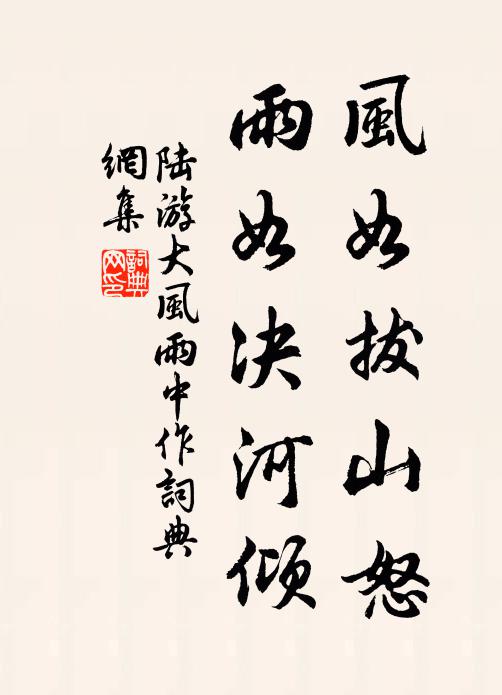 風如拔山怒
雨如決河傾
陆游大風雨中作詞典
網集
詞典
网印